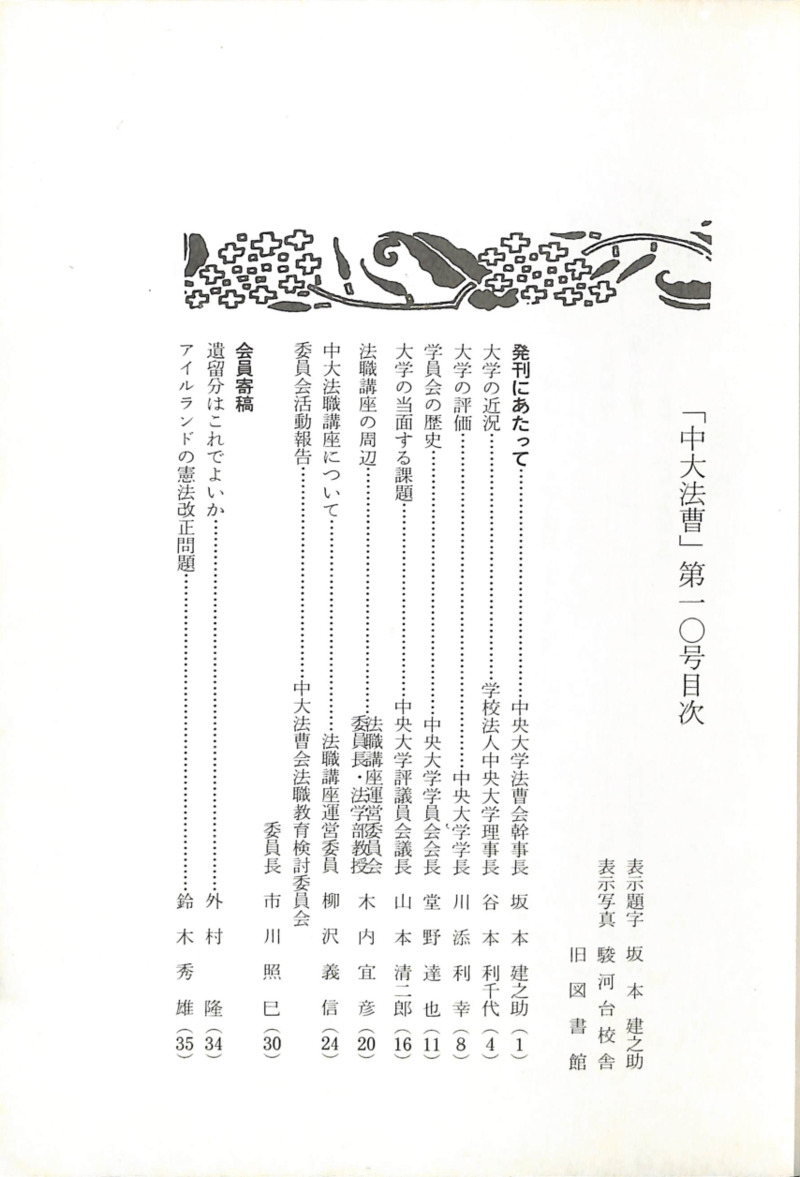 「中大法曹」第一〇号目次
表示題字　坂本建之助
表示写真　駿河台校舎
旧図書館
発刊にあたって……中央大学法曹会幹事長　坂本建之助（1）
大学の近況……学校法人中央大学理事長　谷本利千代（4）
大学の評価……中央大学学長　川添利幸（8）
学員会の歴史……中央大学学員会会長　堂野達也（11）
大学の当面する課題……中央大学評議員会議長　山本清二郎（16）
法職講座の周辺……法職講座運営委員会委員長・法学部教授　木内宜彦（20）
中大法職講座について……法職講座運営委員　柳沢義信（24）
委員会活動報告……中大法曹会法職教育検討委員会
委員長　市川照巳（30）
会員寄稿
遺留分はこれでよいか……外村隆（34）
アイルランドの憲法改正問題……鈴木秀雄（35）